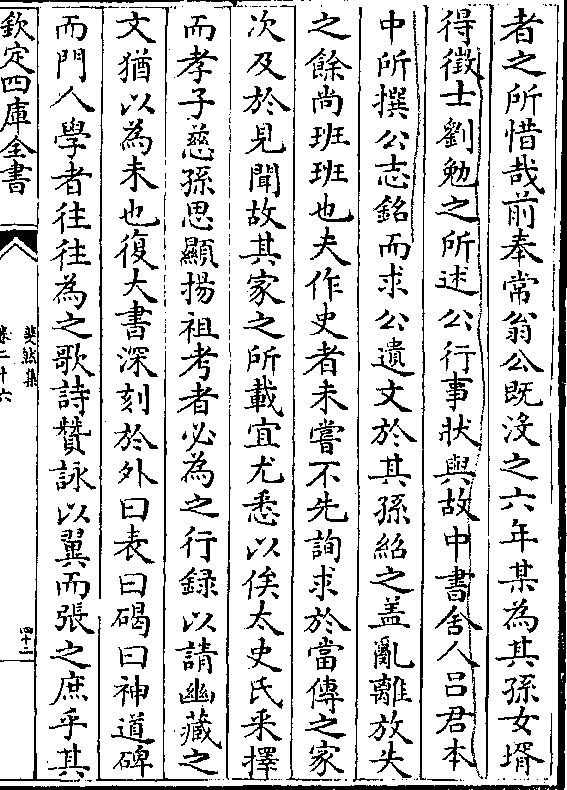 者之所惜哉前奉常翁公既沒之六年某為其孫女壻
得徵士劉勉之所述公行事狀與故中書舍人呂君本
中所撰公志銘而求公遺文於其孫紹之盖亂離放失
之餘尚班班也夫作史者未嘗不先詢求於當傳之家
次及於見聞故其家之所載宜尤悉以俟太史氏采擇
而孝子慈孫思顯揚祖考者必為之行録以請幽藏之
文猶以為未也復大書深刻於外曰表曰碣曰神道碑
而門人學者往往為之歌詩贊詠以翼而張之庶乎其
欽定四庫全書
斐然集
卷二十六
四十二